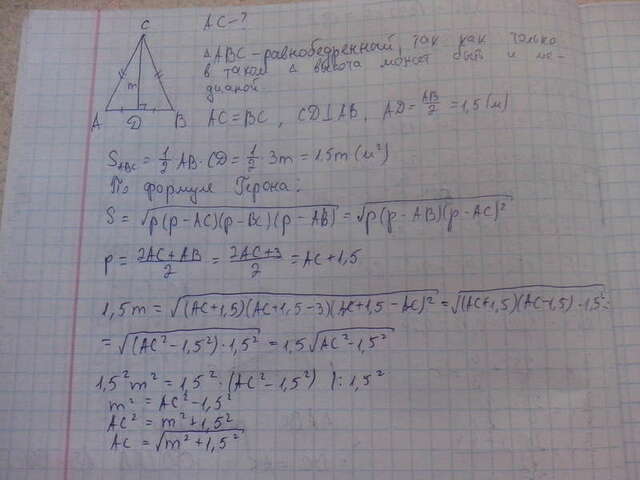 C
m
A D B
AC-?
△ABC - равнобедренный, так как только
в таком △ высота может быть и ме-
дианой.
AC=BC, CD⊥AB, AD=AB/2=1,5(м)
S_ABC = 1/2·AB·CD = 1/2·3m = 1.5m (м²)
По формуле Герона:
S = √(p(p-AC)(p-BC)(p-AB)) = √(p(p-AB)(p-AC)²)
p = (2AC+AB)/2 = (2AC+3)/2 = AC+1,5
1,5m = √((AC+1,5)(AC+1,5-3)(AC+1,5-AC)²) = √((AC+1,5)(AC-1,5)·1,5²)
= √((AC²-1,5²)·1,5²) = 1,5√(AC²-1,5²)
1,5²m² = 1,5²·(AC²-1,5²) |:1,5²
m² = AC²-1,5²
AC² = m²+1,5²
AC = √(m²+1,5²)